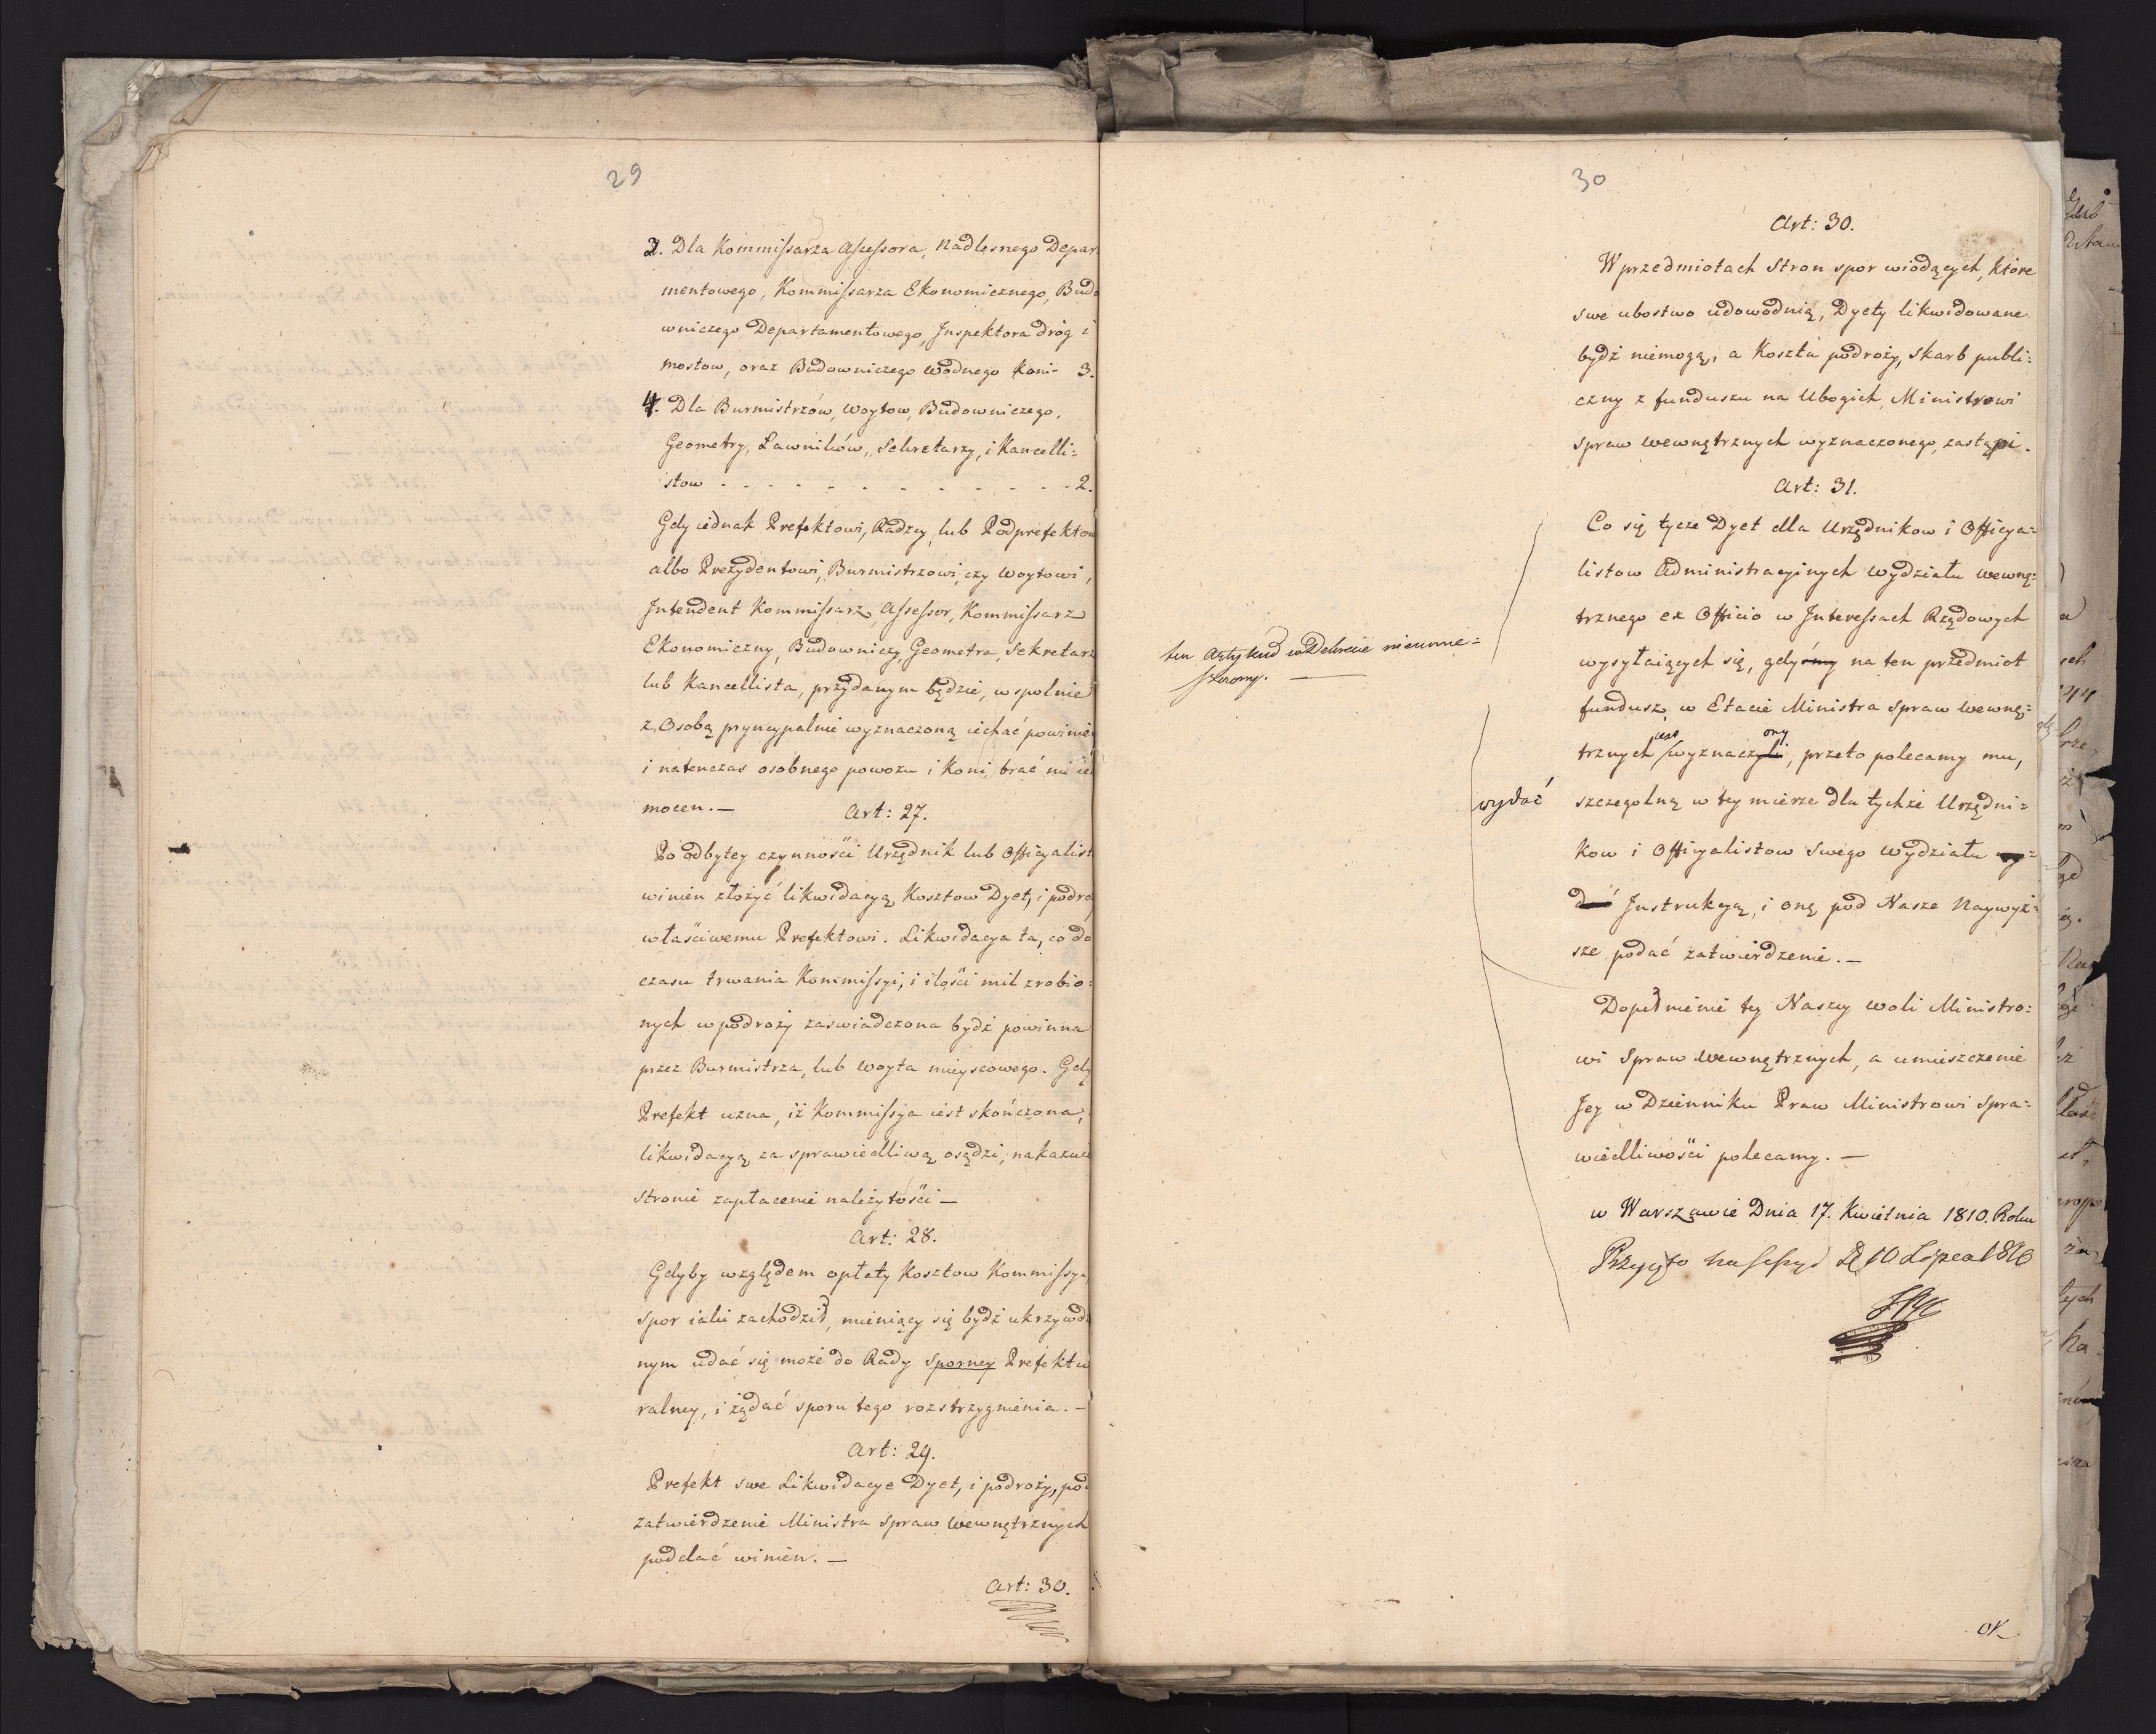 29
3. Dla Kommissarza Assessora, Nadlesnego Depar
mentowego, Kommissarza Ekonomicznego, Budo
wniczego Departamentowego, Inspektora dróg i
mostow, oraz Budowniczego Wodnego Koni- 3.
4. Dla Burmistrzów, Woytow, Budowniczego,
Geometry, Ławników, Sekretarzy, i Kancelli:
stow - - - - - - - - - - - - - 2.
Gdy iednak Prefektowi, Radzcy, lub Podprefektow
albo Prezydentowi, Burmistrzowi, czy Woytowi,
Intendent Kommissarz, Assessor, Kommissarz
Ekonomiczny, Budowniczy, Geometra, Sekretarz
lub Kancellista, przydanym będzie, wspolnie
z Osobą pryncypalnie wyznaczoną iechać powinie
i natenczas osobnego powozu i Koni, brać nie
mocen. —
Art: 27.
Po odbytey czynności Urzędnik lub Officyalist
winien złożyć likwidacyą Kosztow Dyet, i podro
właściwemu Prefektowi. Likwidacya ta, co do
czasu trwania Kommissyi, i ilości mil zrobio:
nych w podroży zaswiadczona bydź powinna
przez Burmistrza, lub Woyta mieyscowego. Gdy
Prefekt uzna, iż Kommissya iest skończona,
likwidacyą za sprawiedliwą osądzi, nakazuie
stronie zapłacenie należytości —
Art: 28.
Gdyby względem opłaty Kosztow Kommissy
spor iaki zachodził, mieniący się bydź ukrzywdz
nym udać się może do Rady Sporney Prefektu
ralney, i żądać sporu tego rozstrzygnienia. —
Art: 29.
Prefekt swe Likwidacye Dyet, i podroży, pod
zatwierdzenie Ministra Spraw Wewnętrznych
poddać winien. —
Art: 30.
30
Art: 30.
W przedmiotach Stron spor wiodących, które
swe ubostwo udowodnią, Dyety likwidowane
bydź niemogą, a Koszta podroży, Skarb publi:
czny z funduszu na Ubogich, Ministrowi
Spraw Wewnętrznych wyznaczonego, zastąpi.
Art: 31.
Co się tycze Dyet dla Urzędnikow i Officya:
listow Administracyinych Wydziału Wewnę:
trznego ex Officio w Interessach Rządowych
wysyłaiących się, gdyśmy na ten przedmiot
fundusz w Etacie Ministra Spraw Wewnę:
iest ony
trznych wyznaczyli, przeto polecamy mu,
szczegolną w tey mierze dla tychże Urzędni:
kow i Officyalistow Swego Wydziału wy:
dać Instrukcyą, i oną pod Nasze Naywyż:
sze podać zatwierdzenie. —
ten Artykuł w Dekrecie nieumie:
szczony. —
wydać
Dopełnienie tey Naszey woli Ministro:
wi Spraw Wewnętrznych, a umieszczenie
Jey w Dzienniku Praw Ministrowi Spra:
wiedliwości polecamy. —
w Warszawie Dnia 17. Kwietnia 1810. Roku
Przyięto na Sessyi D 10 Lipca 1810